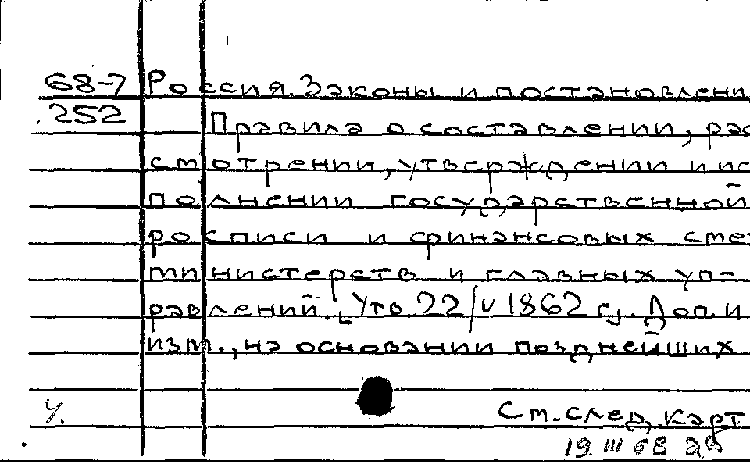 68-7 Россия. Законы и постановлени
252 Правила о составлении, рас
смотрении, утверждении и ис
полнении государственной
росписи и финансовых сме
министерств и главных уп-
равлений. [Утв. 22/V 1862 г.]. Доп. и
изм., на основании позднейших
См. след. карт
19 III 68